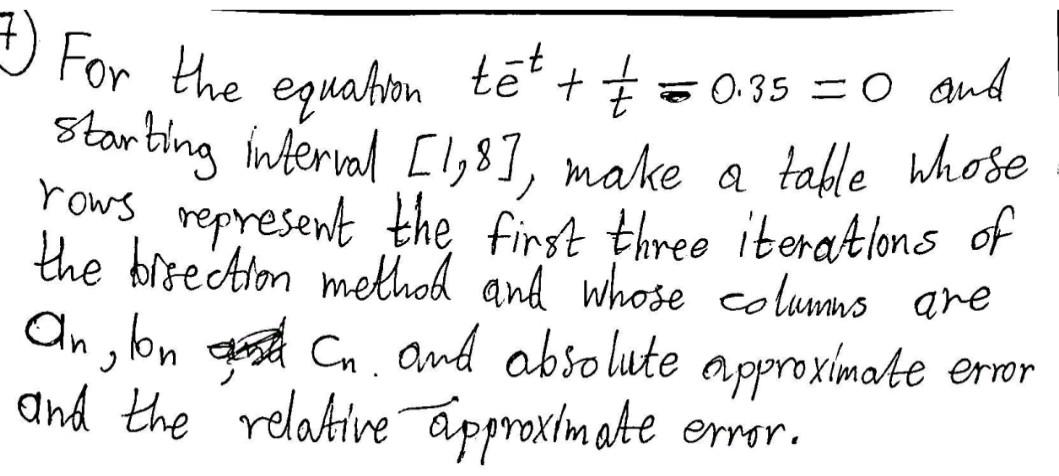 7) For the equation te^-t + 1/t - 0.35 = 0 and
starting interval [1,8], make a table whose
rows represent the first three iterations of
the bisection method and whose columns are
an, bn Cn. and absolute approximate error
and the relative approximate error.